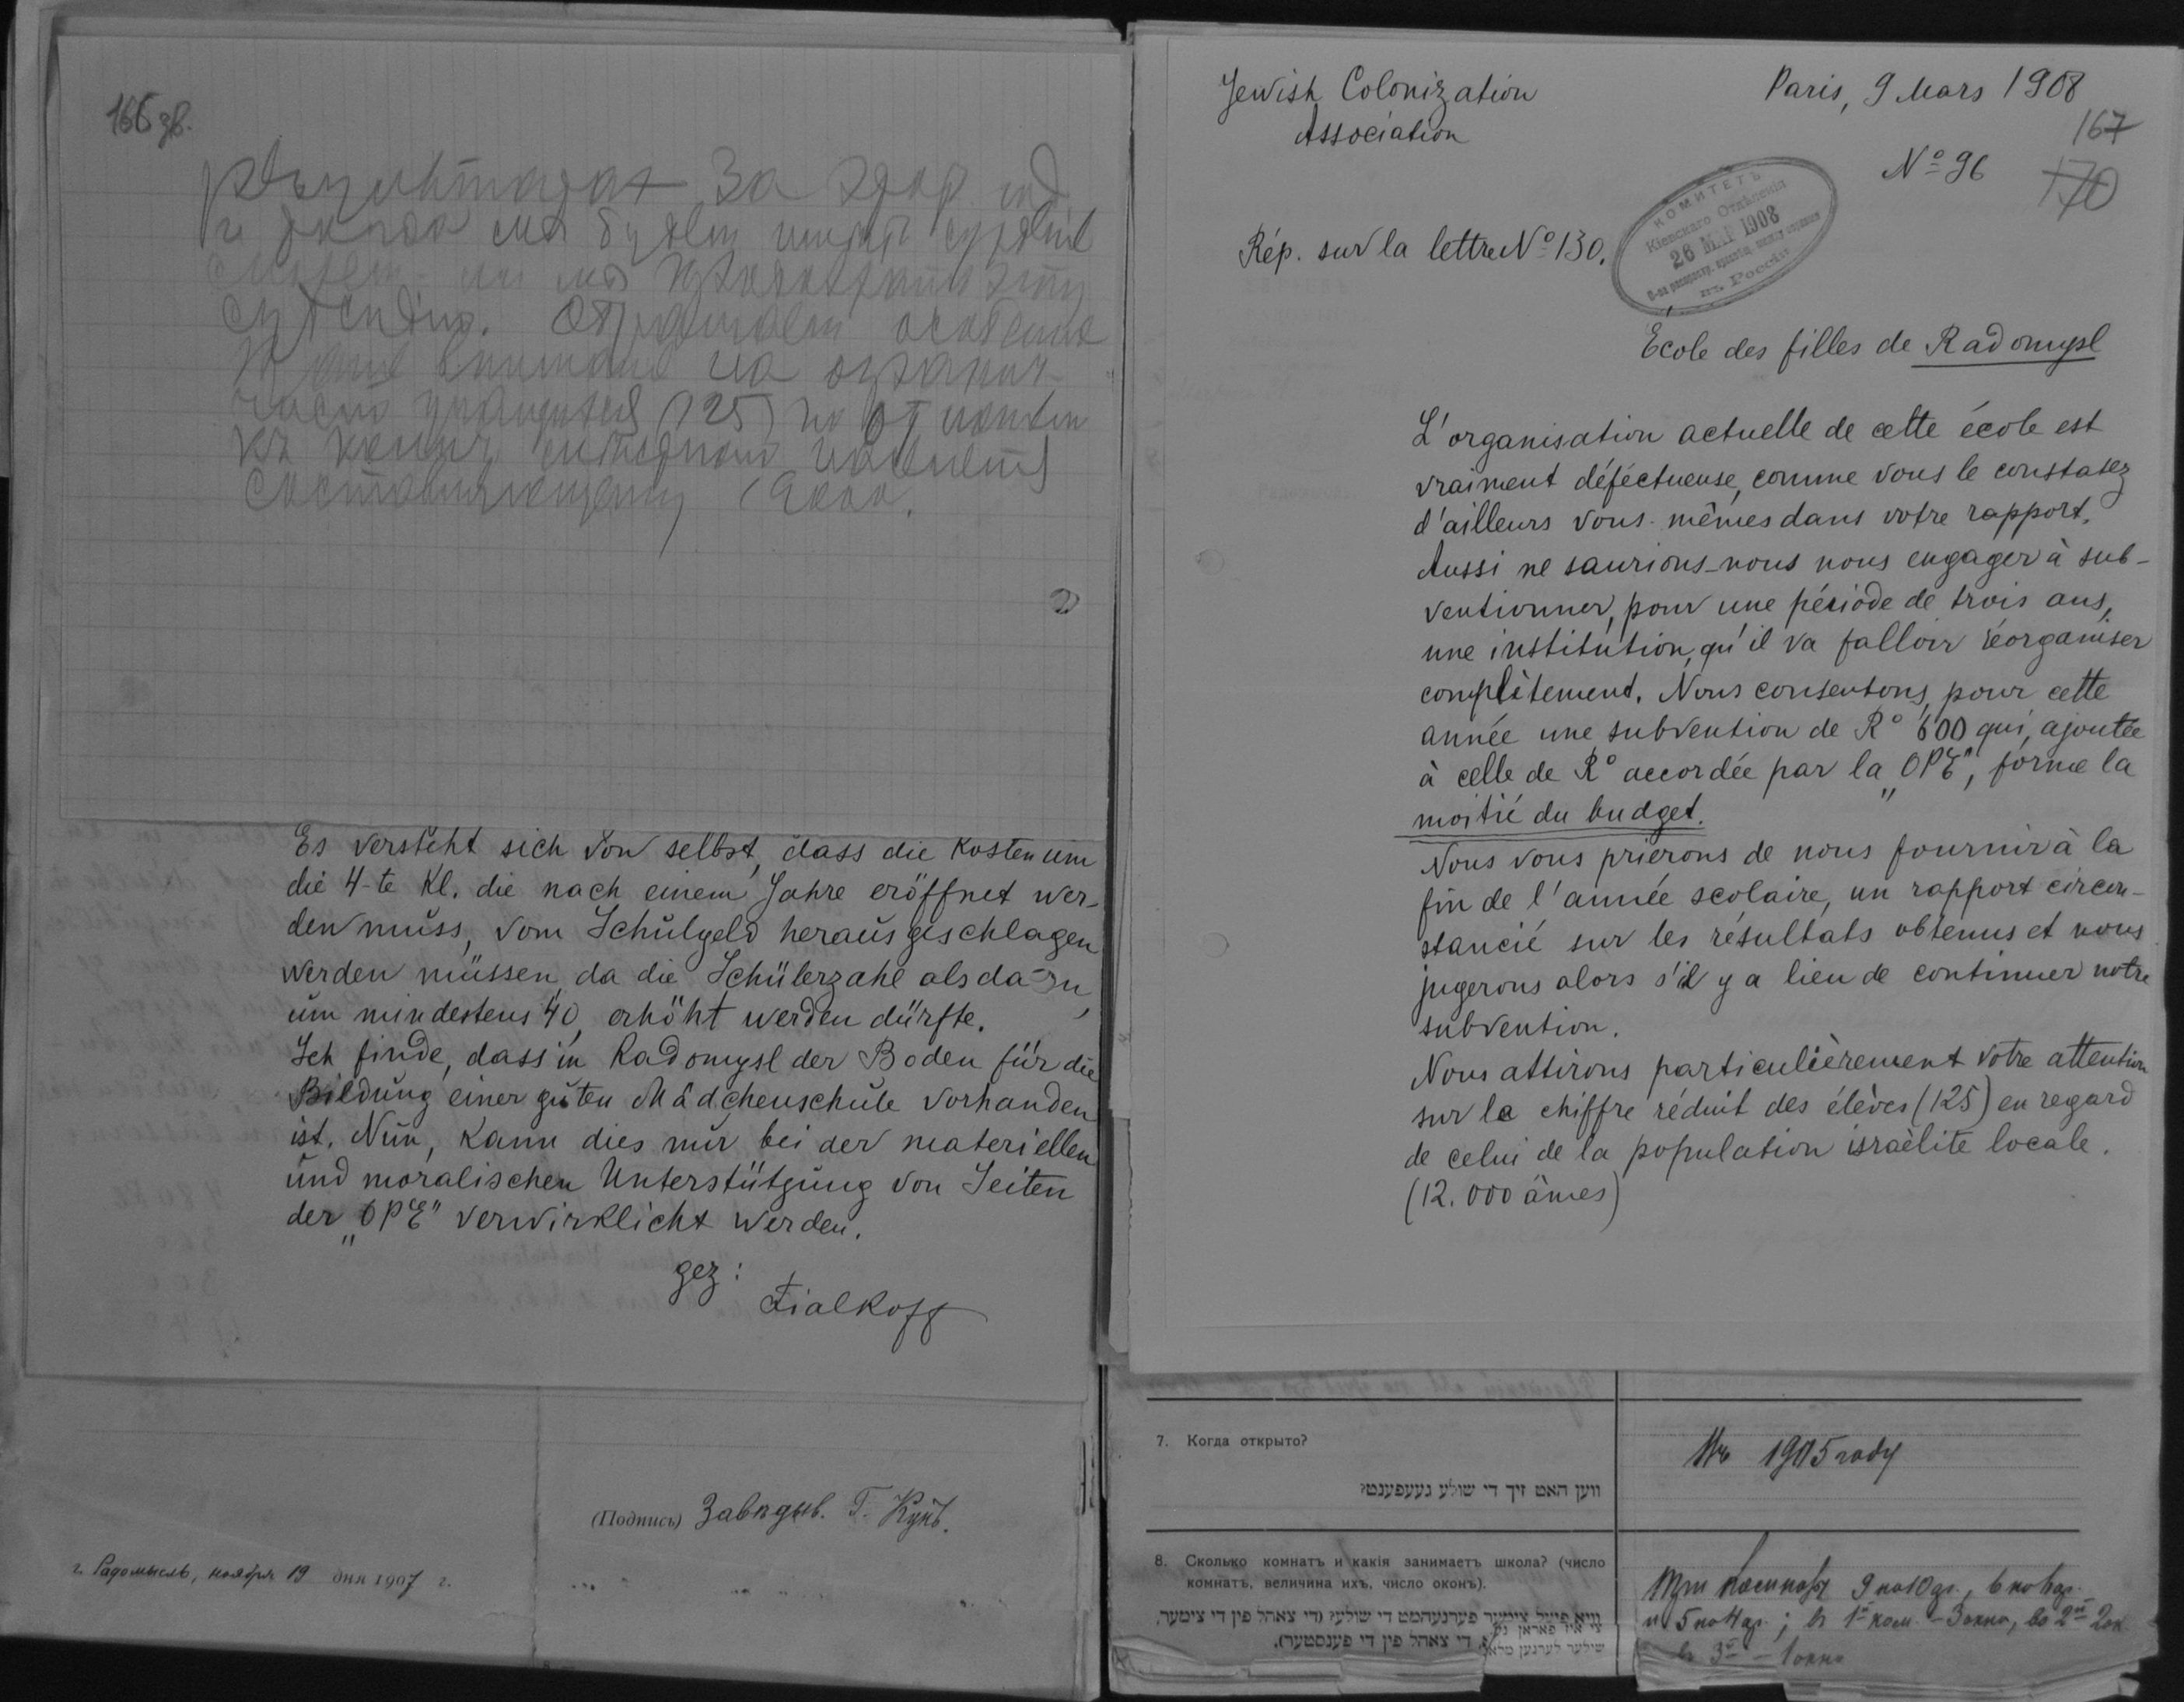 166 зв.
за
и тогда мы будем
субсидию. Обращаем особенно
внимание на
число учащихся (125) по
Es versteht sich von selbst, dass die Kosten um
die 4-te Kl. die nach einem Jahre eröffnet wer-
den muss, vom Schulgeld herausgeschlagen
werden müssen, da die Schülerzahl als dazu,
um mindestens 40, erhöht werden dürfte.
Ich finde, dass in Radomysl der Boden für die
Bildung einer guten Mädchenschule vorhanden
ist. Nun, kann dies nur bei der materiellen
und moralischen Unterstützung von Seiten
der „OPE" verwirklicht werden.
gez:
Fialkoff
(Подпись) Завѣдыв. Г. Кунъ.
г. Радомысль, ноября 19 дня 1907 г.
Jewish Colonization
Association
Paris, 9 Mars 1908
167
170
Nº 96
КОМИТЕТЪ
Кіевскаго Отдѣленія
26 МАР 1908
въ Россіи
Rép. sur la lettre Nº 130.
École des filles de Radomysl
L'organisation actuelle de cette école est
vraiment déféctueuse, comme vous le constatez
d'ailleurs vous-mêmes dans votre rapport.
Aussi ne saurions-nous nous engager à sub-
ventionner, pour une période de trois ans,
une institution, qu'il va falloir réorganiser
complètement. Nous consentons, pour cette
année une subvention de Rº 600 qui, ajoutée
à celle de Rº accordée par la „OPE", forme la
moitié du budget.
Nous vous prierons de nous fournir à la
fin de l'année scolaire, un rapport circon-
stancié sur les résultats obtenus et nous
jugerons alors s'il y a lieu de continuer notre
subvention.
Nous attirons particulièrement votre attention
sur le chiffre réduit des élèves (125) en regard
de celui de la population israèlite locale.
(12.000 âmes)
7. Когда открыто?
ווען האט זיך די שולע געעפענט?
Въ 1905 году
8. Сколько комнатъ и какія занимаетъ школа? (число
комнатъ, величина ихъ, число оконъ).
וויא פיעל צימער פערנעהמט די שולע? (די צאהל פין די צימער,
די צאהל פין די פענסטער).
שילער לערנען
Три комнаты 9 на 10 ар., 6 на 6 ар.
и 5 на 4 ар.; въ 1й ком. – 3 окна, во 2й 2 ок.
въ 3й – 1 окно